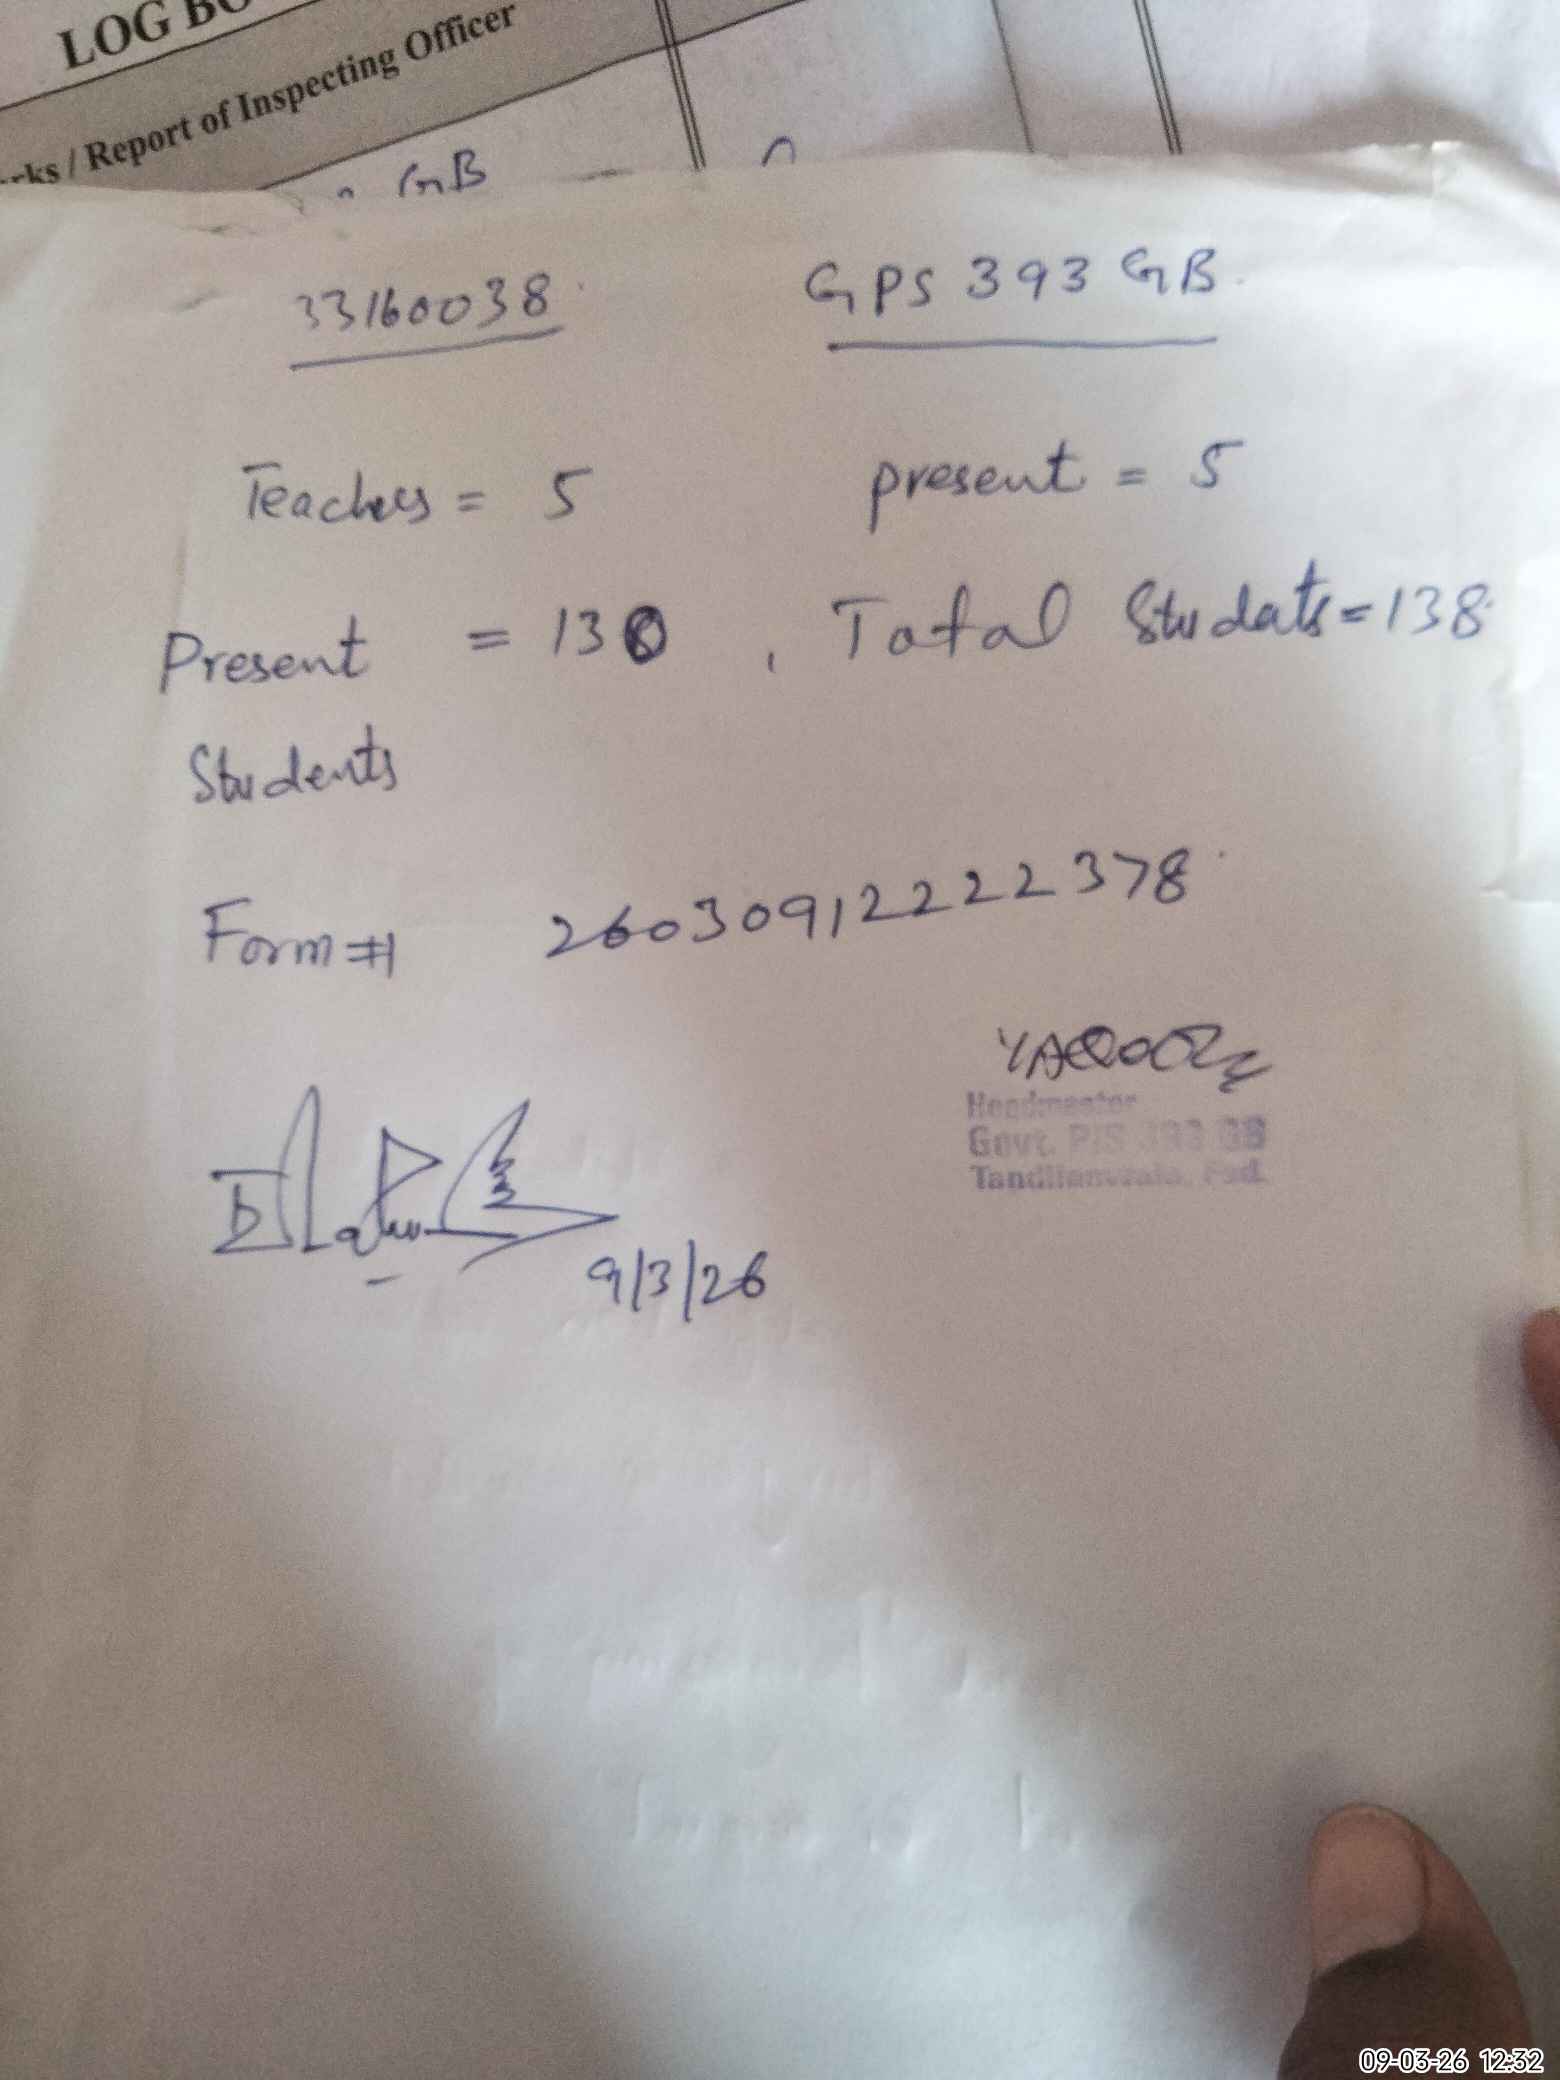 LOG BO
rks / Report of Inspecting Officer
GB
33160038 GPS 393 GB
Teachers = 5 present = 5
Present = 130 , Total Students = 138
Students
Form # 26030912222378
YAQOOB
Headmaster
Govt. P/S 393 GB
Tandlianwala, Fsd.
9/3/26
09-03-26 12:32